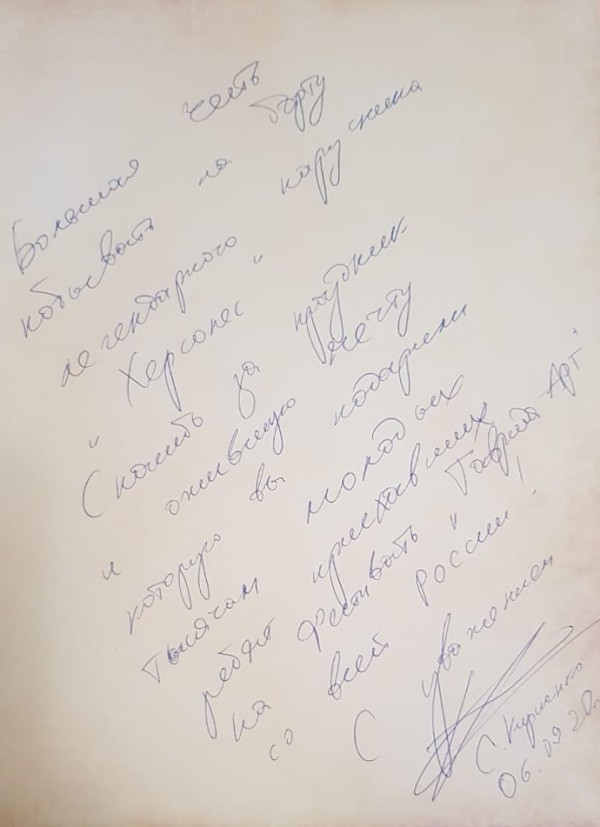 Большая честь
побывать на борту
легендарного парусника
"Херсонес"
Спасибо за праздник
и ожившую мечту
которую вы подарили
тысячам молодых
ребят приехавших
на фестиваль "Таврида-Арт"
со всей России!
С уважением
С. Кириенко
06.09.20г.